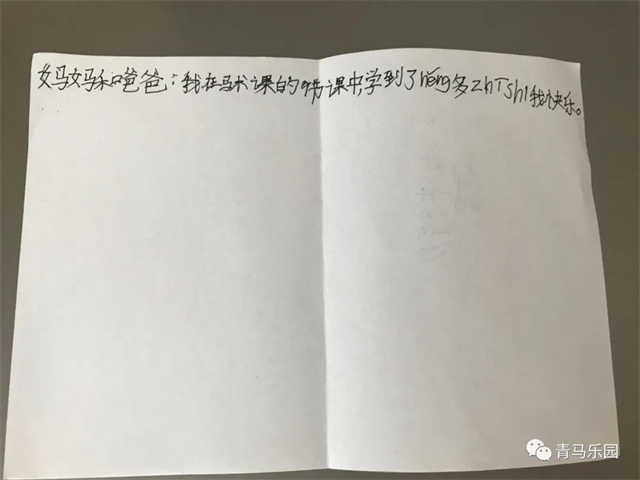 妈妈和爸爸：我在马术课的课中学到了hěng多zhīshi我很快乐。
青马乐园